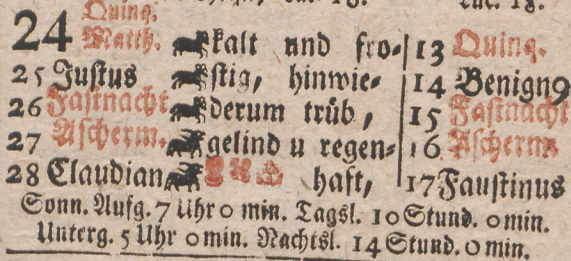 Quinq.
24 Matth. kalt und fro⸗ 13 Quinq.
25 Justus stig, hinwie⸗ 14 Benign9
26 Fastnacht derum trüb, 15 Fastnacht
27 Ascherm. gelind u regen⸗ 16 Ascherm.
28 Claudian haft, 17 Faustinus
Sonn. Aufg. 7 Uhr 0 min. Tagsl. 10 Stund. 0 min.
Unterg. 5 Uhr 0 min. Nachtsl. 14 Stund. 0 min.